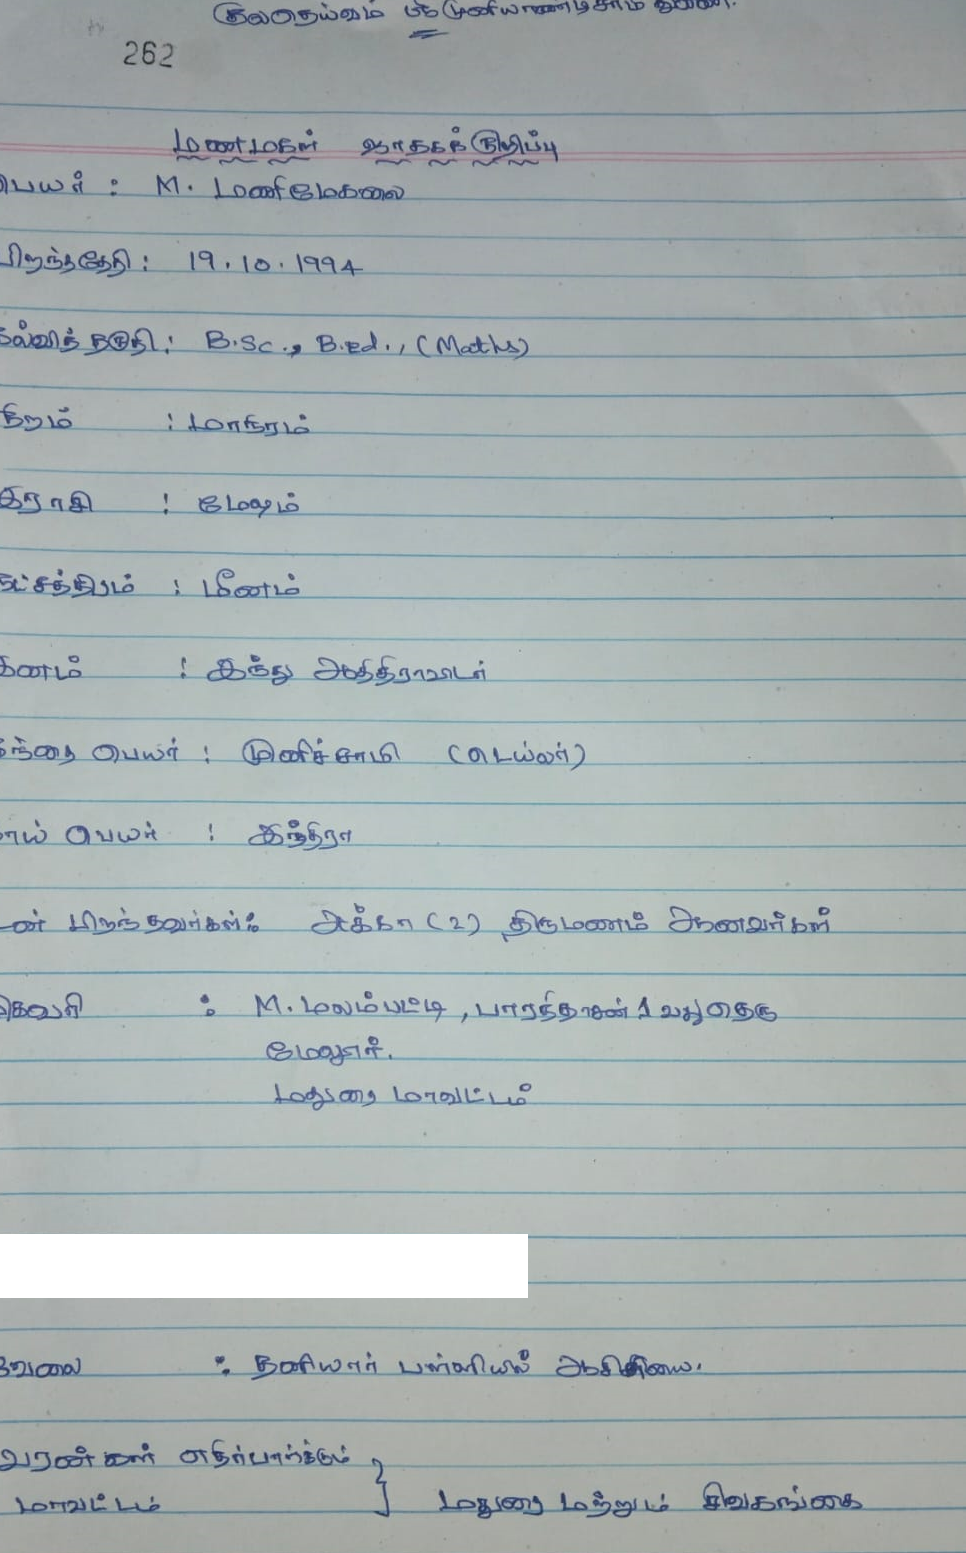 குலதெய்வம் முனியாண்டிசாமி துணை.
262
மணமகள் ஜாதகக் குறிப்பு
பெயர் : M. மணிமேகலை
பிறந்ததேதி : 19.10.1994
கல்வித் தகுதி : B.Sc., B.Ed., (Maths)
நிறம் : மாநிறம்
இராசி : மேஷம்
நட்சத்திரம் : மீனம்
இனம் : இந்து ஆதிதிராவிடர்
தந்தை பெயர் : முனிச்சாமி (டெய்லர்)
தாய் பெயர் : இந்திரா
உடன் பிறந்தவர்கள் : அக்கா (2) திருமணம் ஆனவர்கள்
முகவரி : M. மலம்பட்டி, 1 வது தெரு
மேலூர்.
மதுரை மாவட்டம்
வேலை : தனியார் பள்ளியில் ஆசிரியை.
வரன்கள் எதிர்பார்க்கும்
மாவட்டம் } மதுரை மற்றும் சிவகங்கை